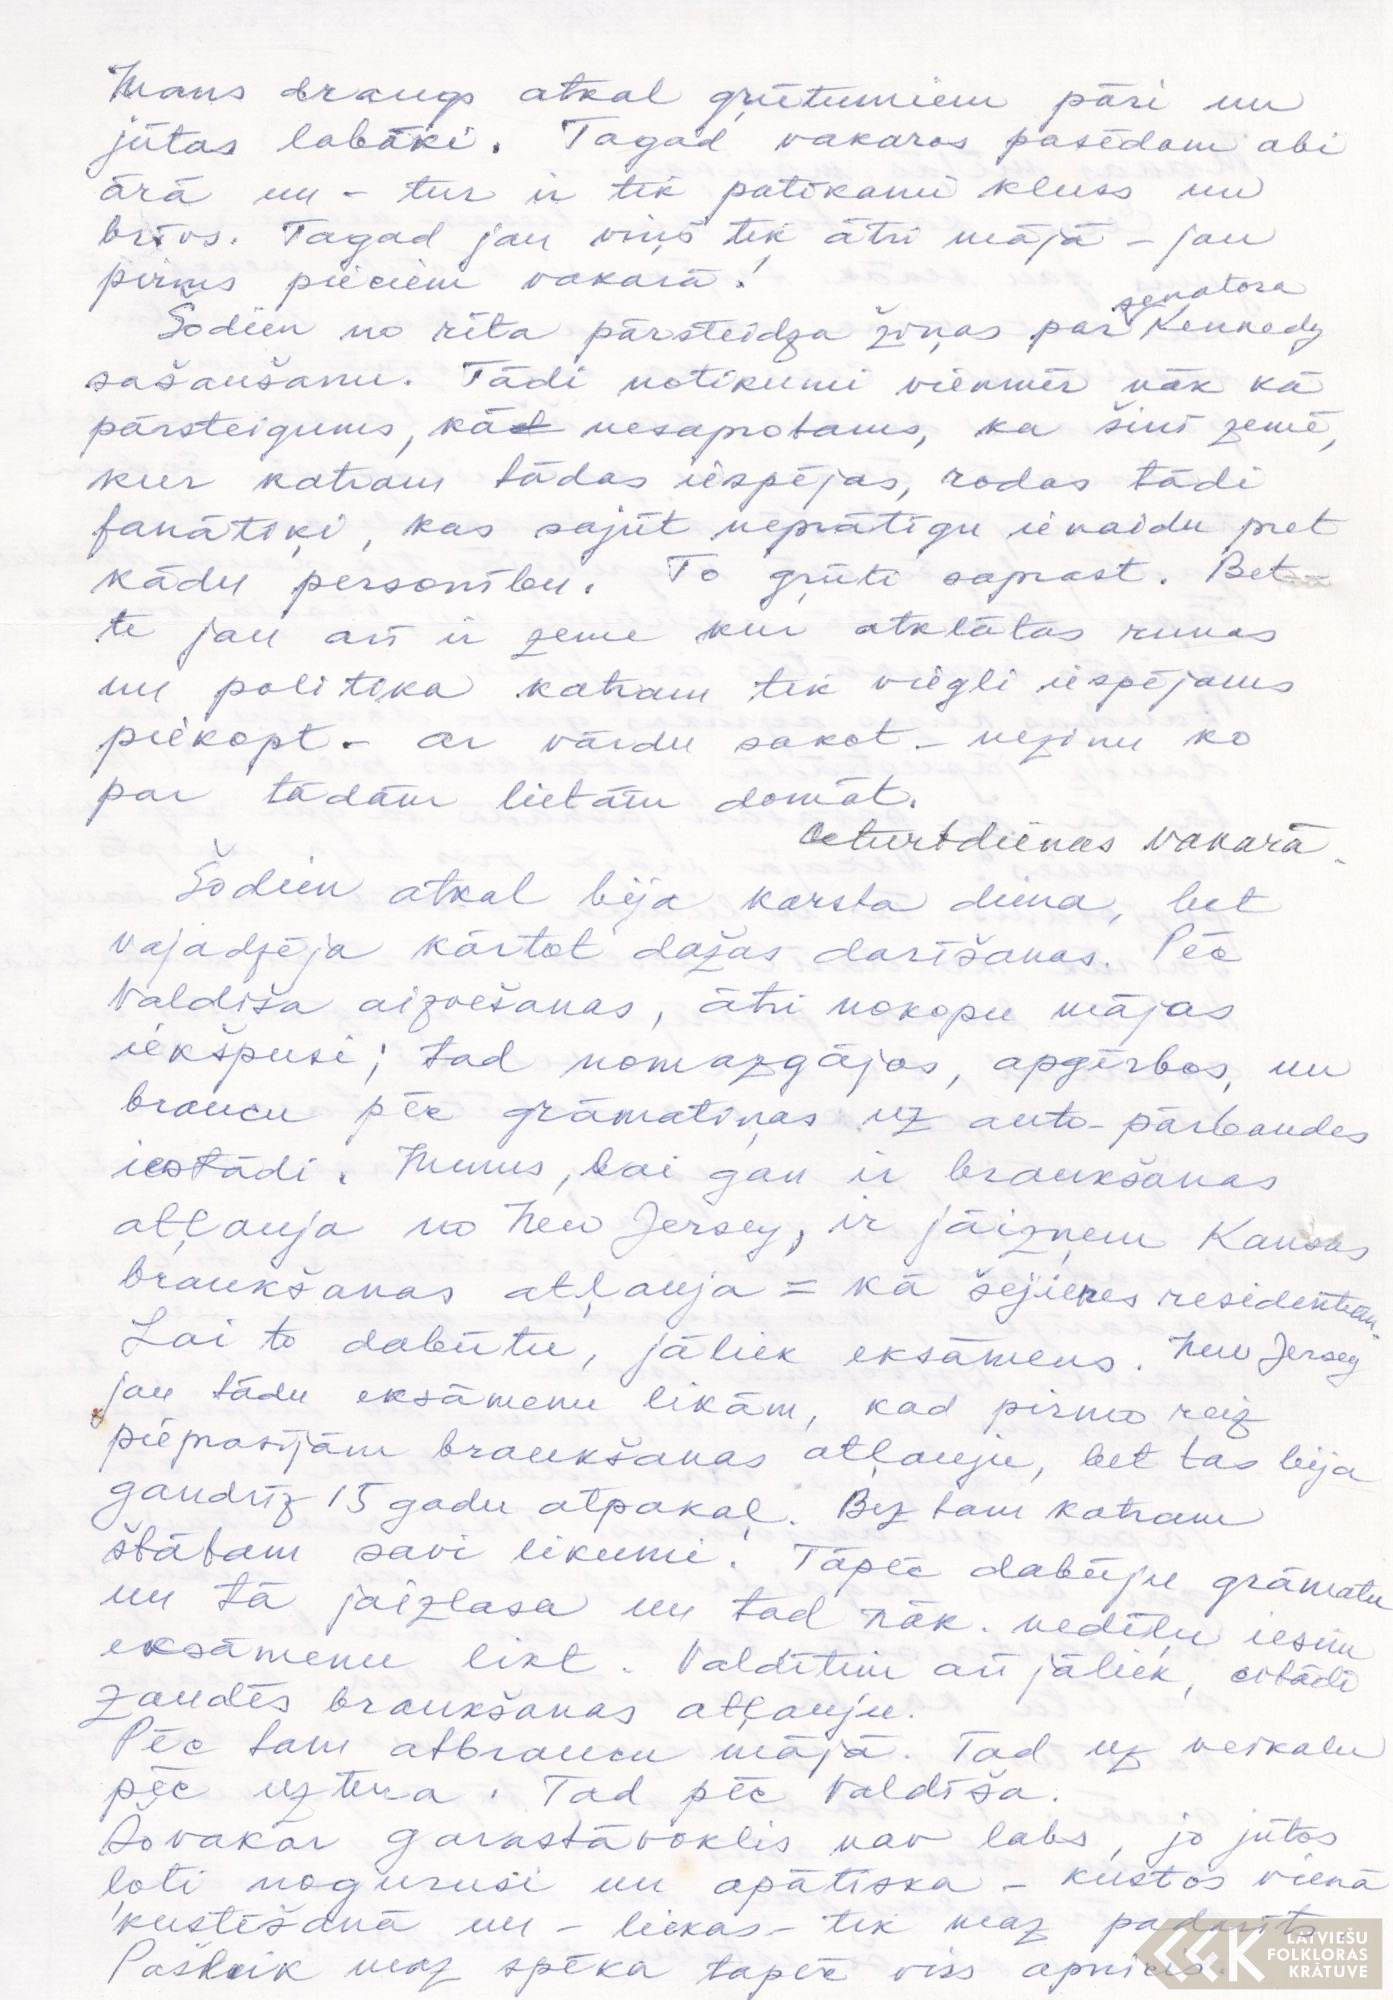 Mans draugs atkal grūtumiem pāri un
jūtas labāki. Tagad vakaros pasēdam abi
ārā un – tur ir tik patīkami kluss un
brīvs. Tagad jau viņš tik ātri mājā – jau
pirms pieciem vakarā!
Šodien no rīta pārsteidza ziņas par senatora Kennedy
sašaušanu. Tādi notikumi vienmēr nāk kā
pārsteigums, kād nesaprotams, ka šinī zemē,
kur katram tādas iespējas, rodas tādi
fanātiķi, kas sajūt neprātīgu ienaidu pret
kādu personību. To grūti saprast. Bet
te jau arī ir zeme kur atklātas runas
un politika katram tik viegli iespējams
piekopt – ar vārdu sakot – nezinu ko
par tādām lietām domāt.
Ceturtdienas vakarā.
Šodien atkal bija karsta diena, bet
vajadzēja kārtot dažas darīšanas. Pēc
Valdiša aizvešanas, ātri nokopu mājas
iekšpusi; tad nomazgājos, apģērbos, un
braucu pēc grāmatiņas uz auto-pārbaudes
iestādi. Mums, lai gan ir braukšanas
atļauja no New Jersey, ir jāizņem Kansas
braukšanas atļauja = kā šejienes residentiem.
Lai to dabūtu, jāliek eksāmens. New Jersey
jau tādu eksāmenu likām, kad pirmo reiz
pieprasījām braukšanas atļauju, bet tas bija
gandrīz 15 gadu atpakaļ. Bez tam katram
štātam savi likumi. Tāpēc dabūju grāmatu
un tā jaizlasa un tad nāk. nedēļu iesim
eksāmenu likt. Valdītim arī jāliek, citādi
zaudēs braukšanas atļauju.
Pēc tam atbraucu mājā. Tad uz veikalu
pēc uztura. Tad pēc Valdiša.
Šovakar garastāvoklis nav labs, jo jūtos
ļoti nogurusi un apātiska – kustos vienā
kustēšanā un – liekas – tik maz padarīts
Pašlaik maz spēka tapēc viss apnicis.
LATVIEŠU
FOLKLORAS
KRĀTUVE